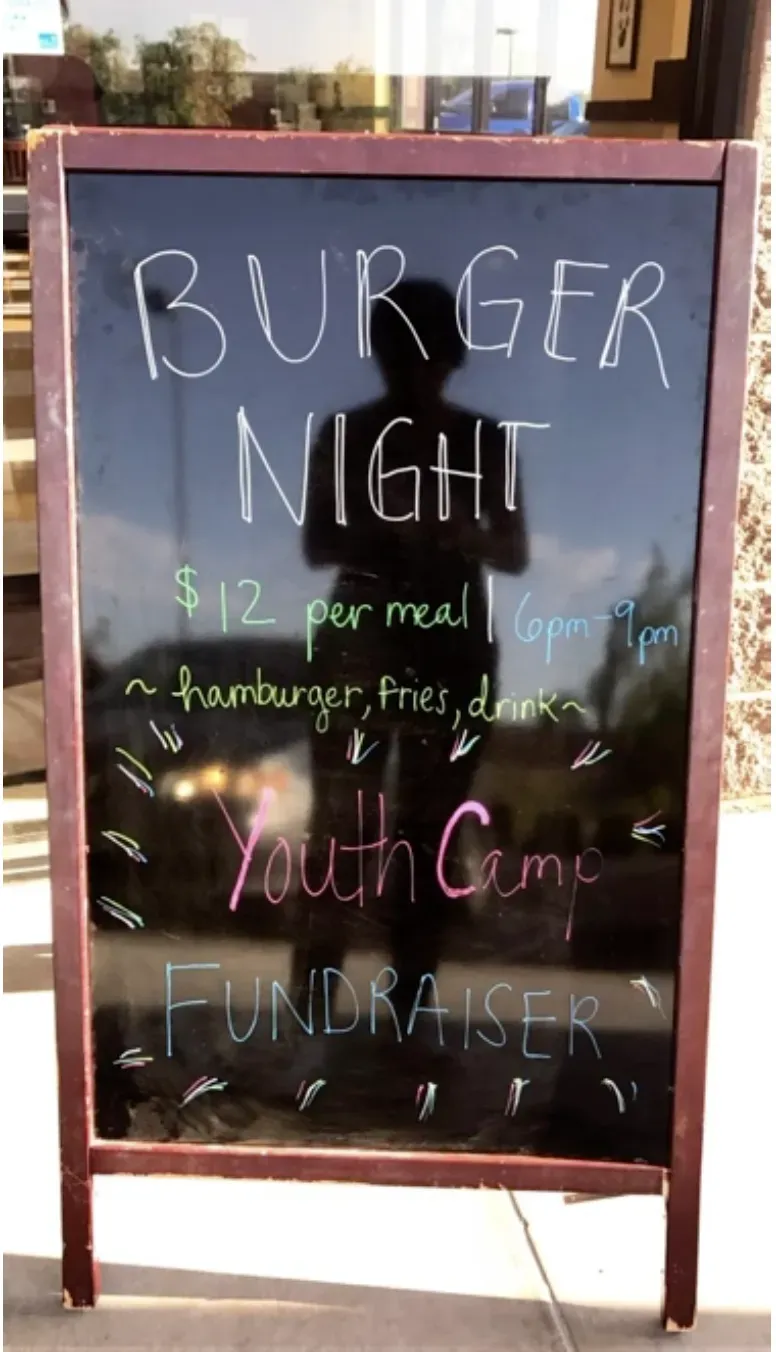 BURGER
NIGHT
$12 per meal | 6pm-9pm
~ hamburger, fries, drink ~
Youth Camp
FUNDRAISER